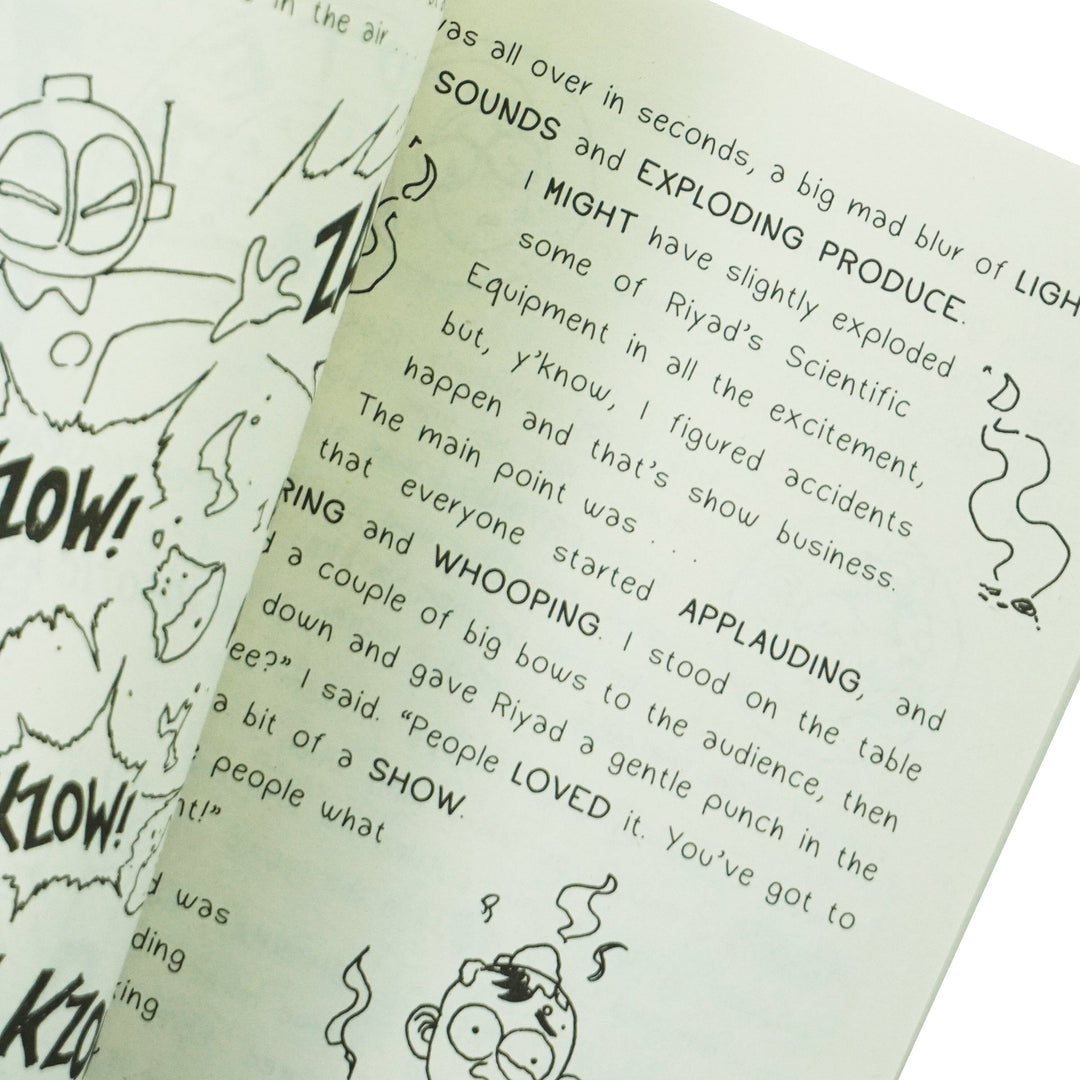 in the air . . .
KZOW!
KZOW!
KZO
was all over in seconds, a big mad blur of LIGH
SOUNDS and EXPLODING PRODUCE.
I MIGHT have slightly exploded
some of Riyad’s Scientific
Equipment in all the excitement,
but, y’know, I figured accidents
happen and that’s show business.
The main point was . . .
that everyone started APPLAUDING, and
RING and WHOOPING. I stood on the table
a couple of big bows to the audience, then
down and gave Riyad a gentle punch in the
ee?” I said. “People LOVED it. You’ve got to
a bit of a SHOW.
people what
nt!”
was
ding